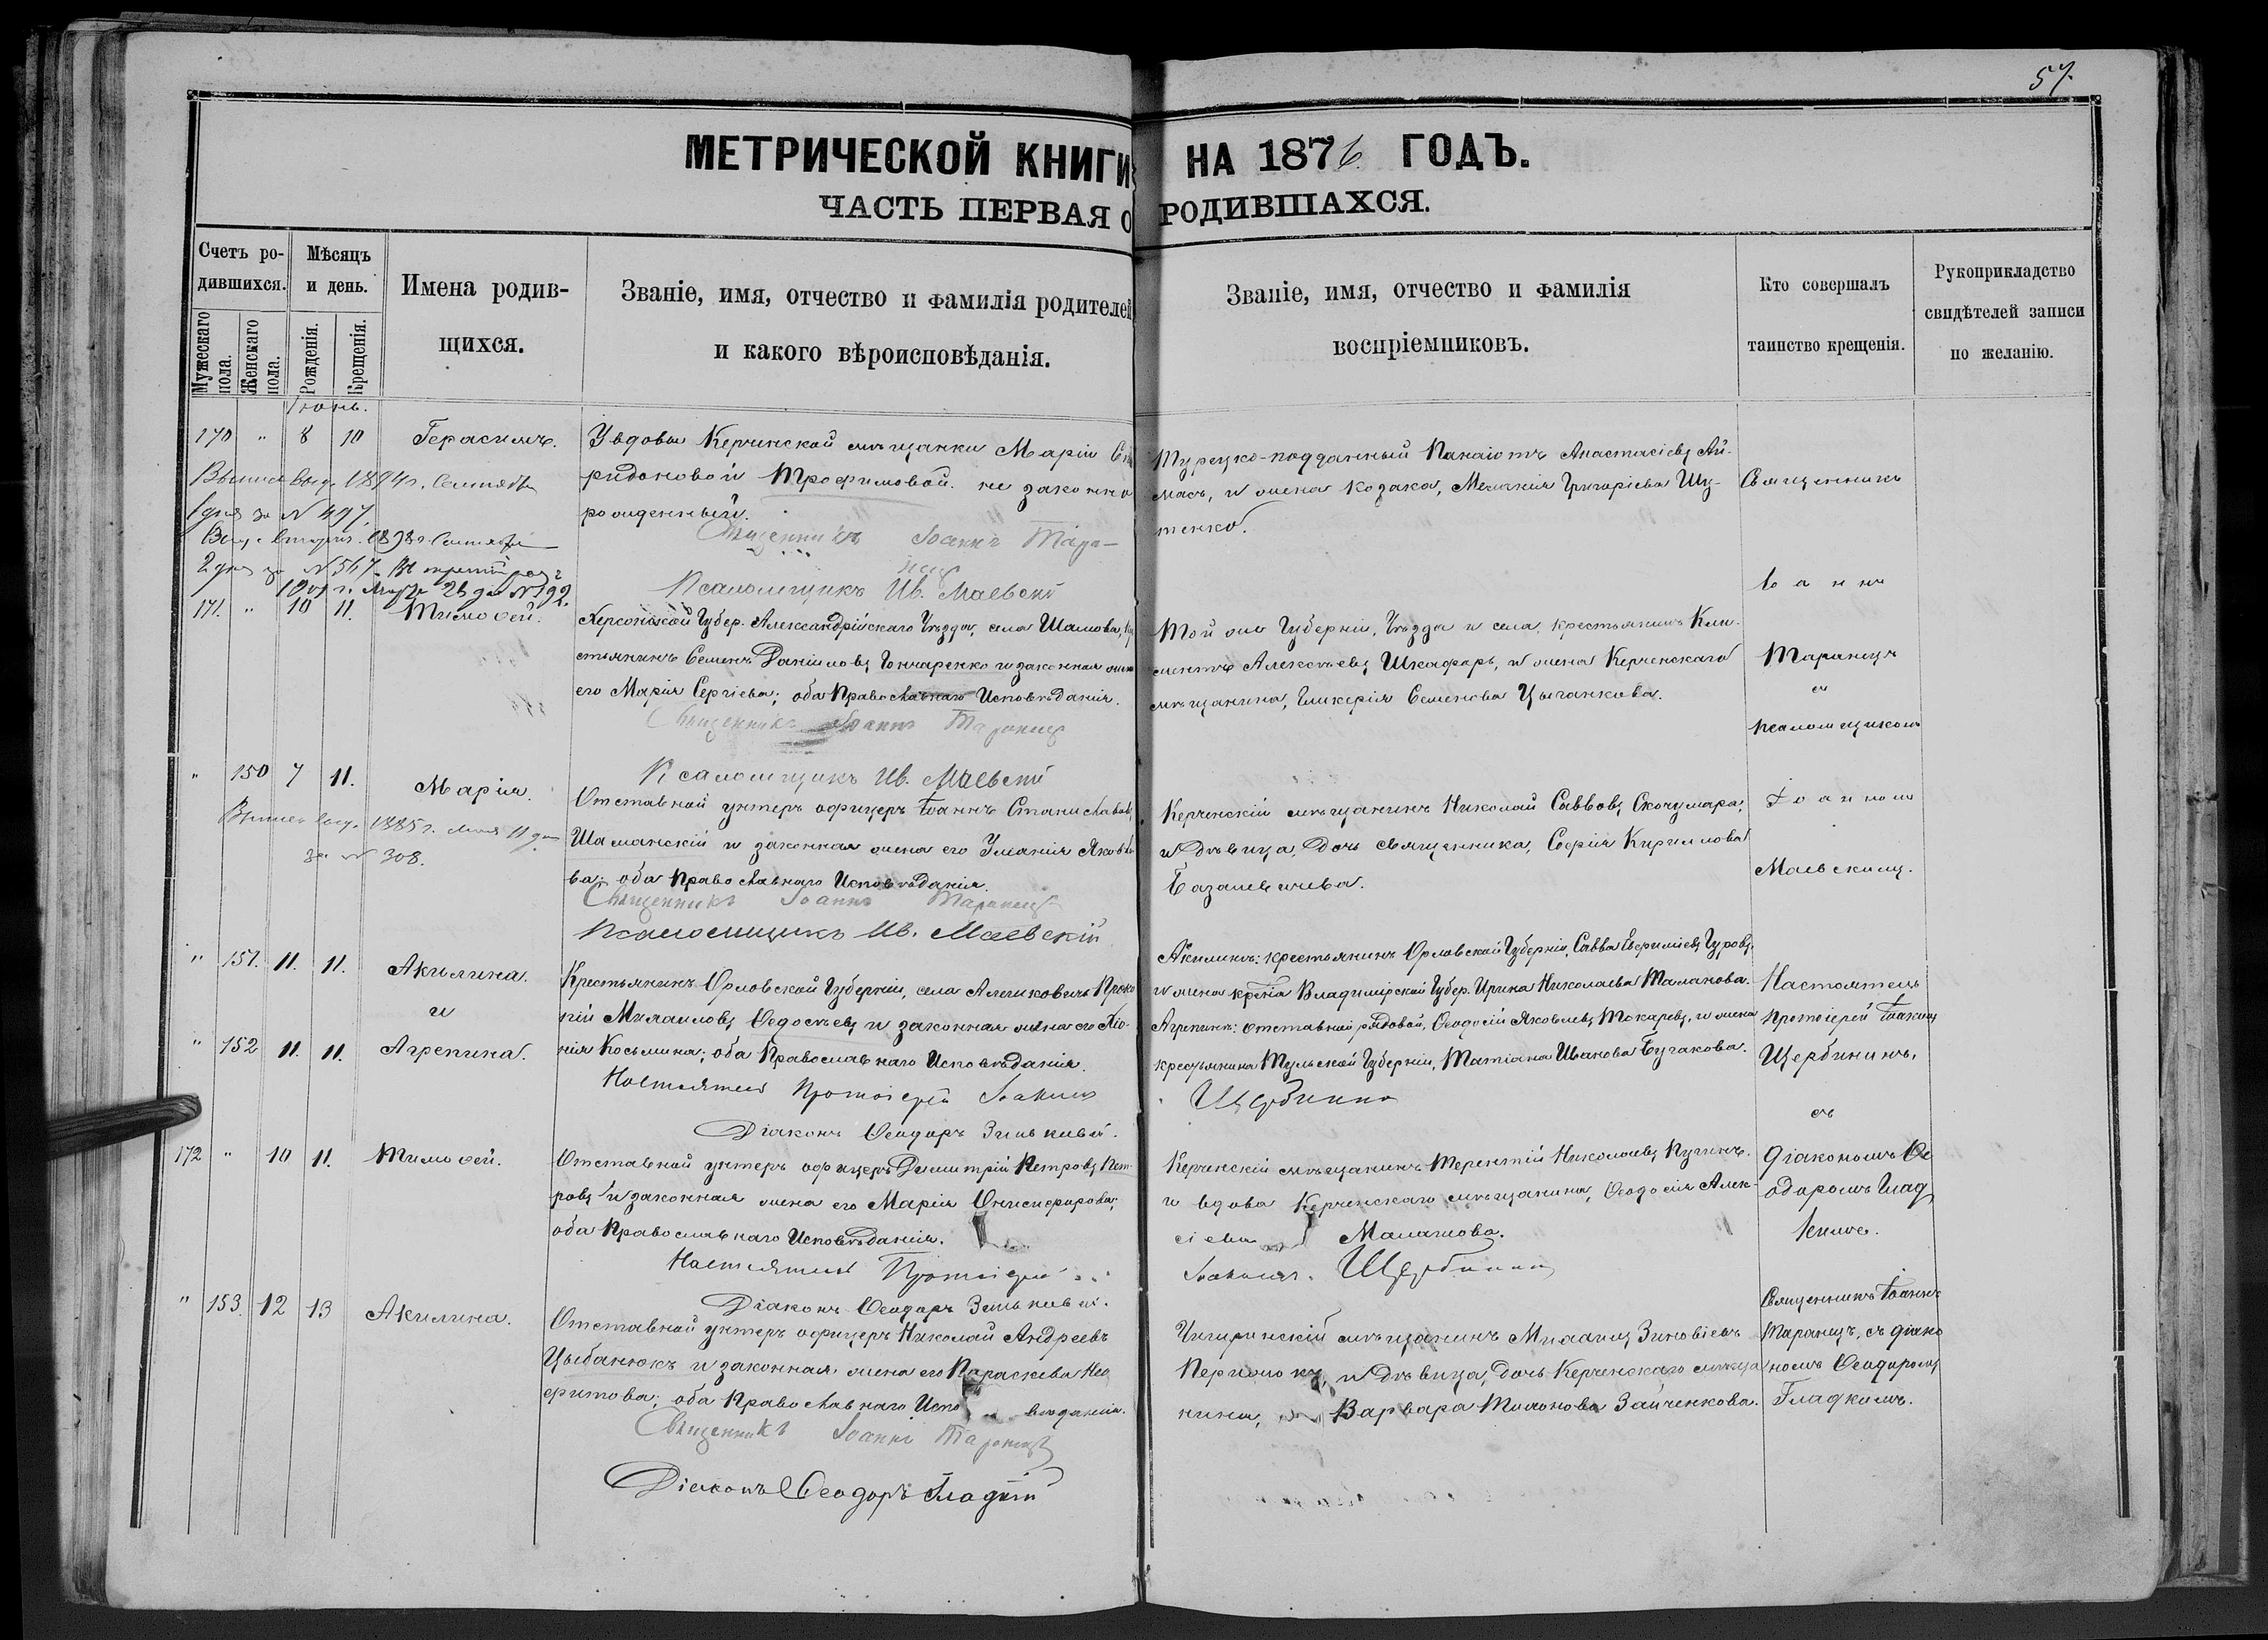 57.
МЕТРИЧЕСКОЙ КНИГИ НА 1876 ГОДЪ.
ЧАСТЬ ПЕРВАЯ О РОДИВШАХСЯ.
Счетъ ро-
дившихся.
Мужескаго пола.
Женскаго пола.
Мѣсяцъ
и день.
Рожденія.
Крещенія.
Имена родив-
щихся.
Званіе, имя, отчество и фамилія родителей
и какого вѣроисповѣданія.
Званіе, имя, отчество и фамилія
воспріемниковъ.
Кто совершалъ
таинство крещенія.
Рукоприкладство
свидѣтелей записи
по желанію.
Іюнь.
170 " 8 10 Герасимъ.
Увдовы Керчинской мѣщанки Маріи Спи
ридоновой Трофимовой не законно
рожденный.
Священникъ Іоаннъ Таранецъ
Псаломщикъ Ив. Маевскій
Турецко-подданный Панаіотъ Анастасіевъ Ай-
масъ, и жена козака, Меланія Григоріева Шу-
тенко.
1894 г. Сентября
1 дня за № 497.
1898 г. Сентября
2 дня за № 567. Въ третій разъ
№ 192.
Священникъ
Іоаннъ
Таранецъ
съ
псаломщикомъ
Іоанномъ
Маевскимъ.
171. " 10 11. Тимоѳей.
Херсонской Губер. Александрійскаго Уѣзда, села Шамова, кре
стьянинъ Семенъ Даніиловъ Гончаренко и законная жена
его Марія Сергіева; оба Православнаго Исповѣданія.
Священникъ Іоаннъ Таранецъ
Псаломщикъ Ив. Маевскій
Той же Губерніи, Уѣзда и села, крестьянинъ Кли-
ментъ Алексѣевъ Шкафаръ, и жена Керченскаго
мѣщанина, Гликерія Семенова Цыганкова.
" 150 7 11. Марія.
1885 г. 11 дня
за № 308.
Отставной унтеръ офицеръ Іоаннъ Станиславовъ
Шаманскій и законная жена его Уліанія Яковле
ва; оба Православнаго Исповѣданія.
Священникъ Іоаннъ Таранецъ
Псаломщикъ Ив. Маевскій
Керченскій мѣщанинъ Николай Саввовъ Скочумара,
и дѣвица, дочь священника, Софія Кириллова
Базалевичева.
" 151. 11. 11. Акилина.
и
" 152 11. 11. Агрепина.
Крестьянинъ Орловской Губерніи, села Алешковичъ Проко
пій Михаиловъ Ѳедосѣевъ и законная жена его Ксе-
нія Косьмина; оба Православнаго Исповѣданія.
Настоятель Протоіерей Іоакимъ Щербининъ
Діаконъ Ѳеодоръ
Акилинѣ: крестьянинъ Орловской Губерніи, Савва Евфиміевъ Гуровъ,
и жена кр-на Владимірской Губер. Ирина Николаева Маланова.
Агрепинѣ: отставной рядовой, Ѳеодосій Яковлевъ Токаревъ, и жена
крестьянина Тульской Губерніи, Татіана Иванова Бугакова.
Настоятель
Протоіерей Іоакимъ
Щербининъ,
съ
діакономъ Ѳе
одоромъ Глад
кимъ.
172 " 10 11. Тимоѳей.
Отставной унтеръ офицеръ Димитрій Петровъ Пет-
ровъ и законная жена его Марія Онисифорова;
оба Православнаго Исповѣданія.
Настоятель Протоіерей Іоакимъ Щербининъ
Діаконъ Ѳеодоръ
Керченскій мѣщанинъ Терентій Николаевъ Пугинъ.
и вдова Керченскаго мѣщанина, Ѳеодосія Алек-
сіева Малахова.
" 153. 12 13 Акилина.
Отставной унтеръ офицеръ Николай Андреевъ
Цыбанюкъ и законная жена его Параскева Нео
фитова; оба Православнаго Исповѣданія.
Священникъ Іоаннъ Таранецъ
Діаконъ Ѳеодоръ Гладкій
Чигиринскій мѣщанинъ Михаилъ Зиновіевъ
и дѣвица, дочь Керченскаго мѣща
нина, Варвара Тимонова Зайченкова.
Священникъ Іоаннъ
Таранецъ, съ діако
номъ Ѳеодоромъ
Гладкимъ.